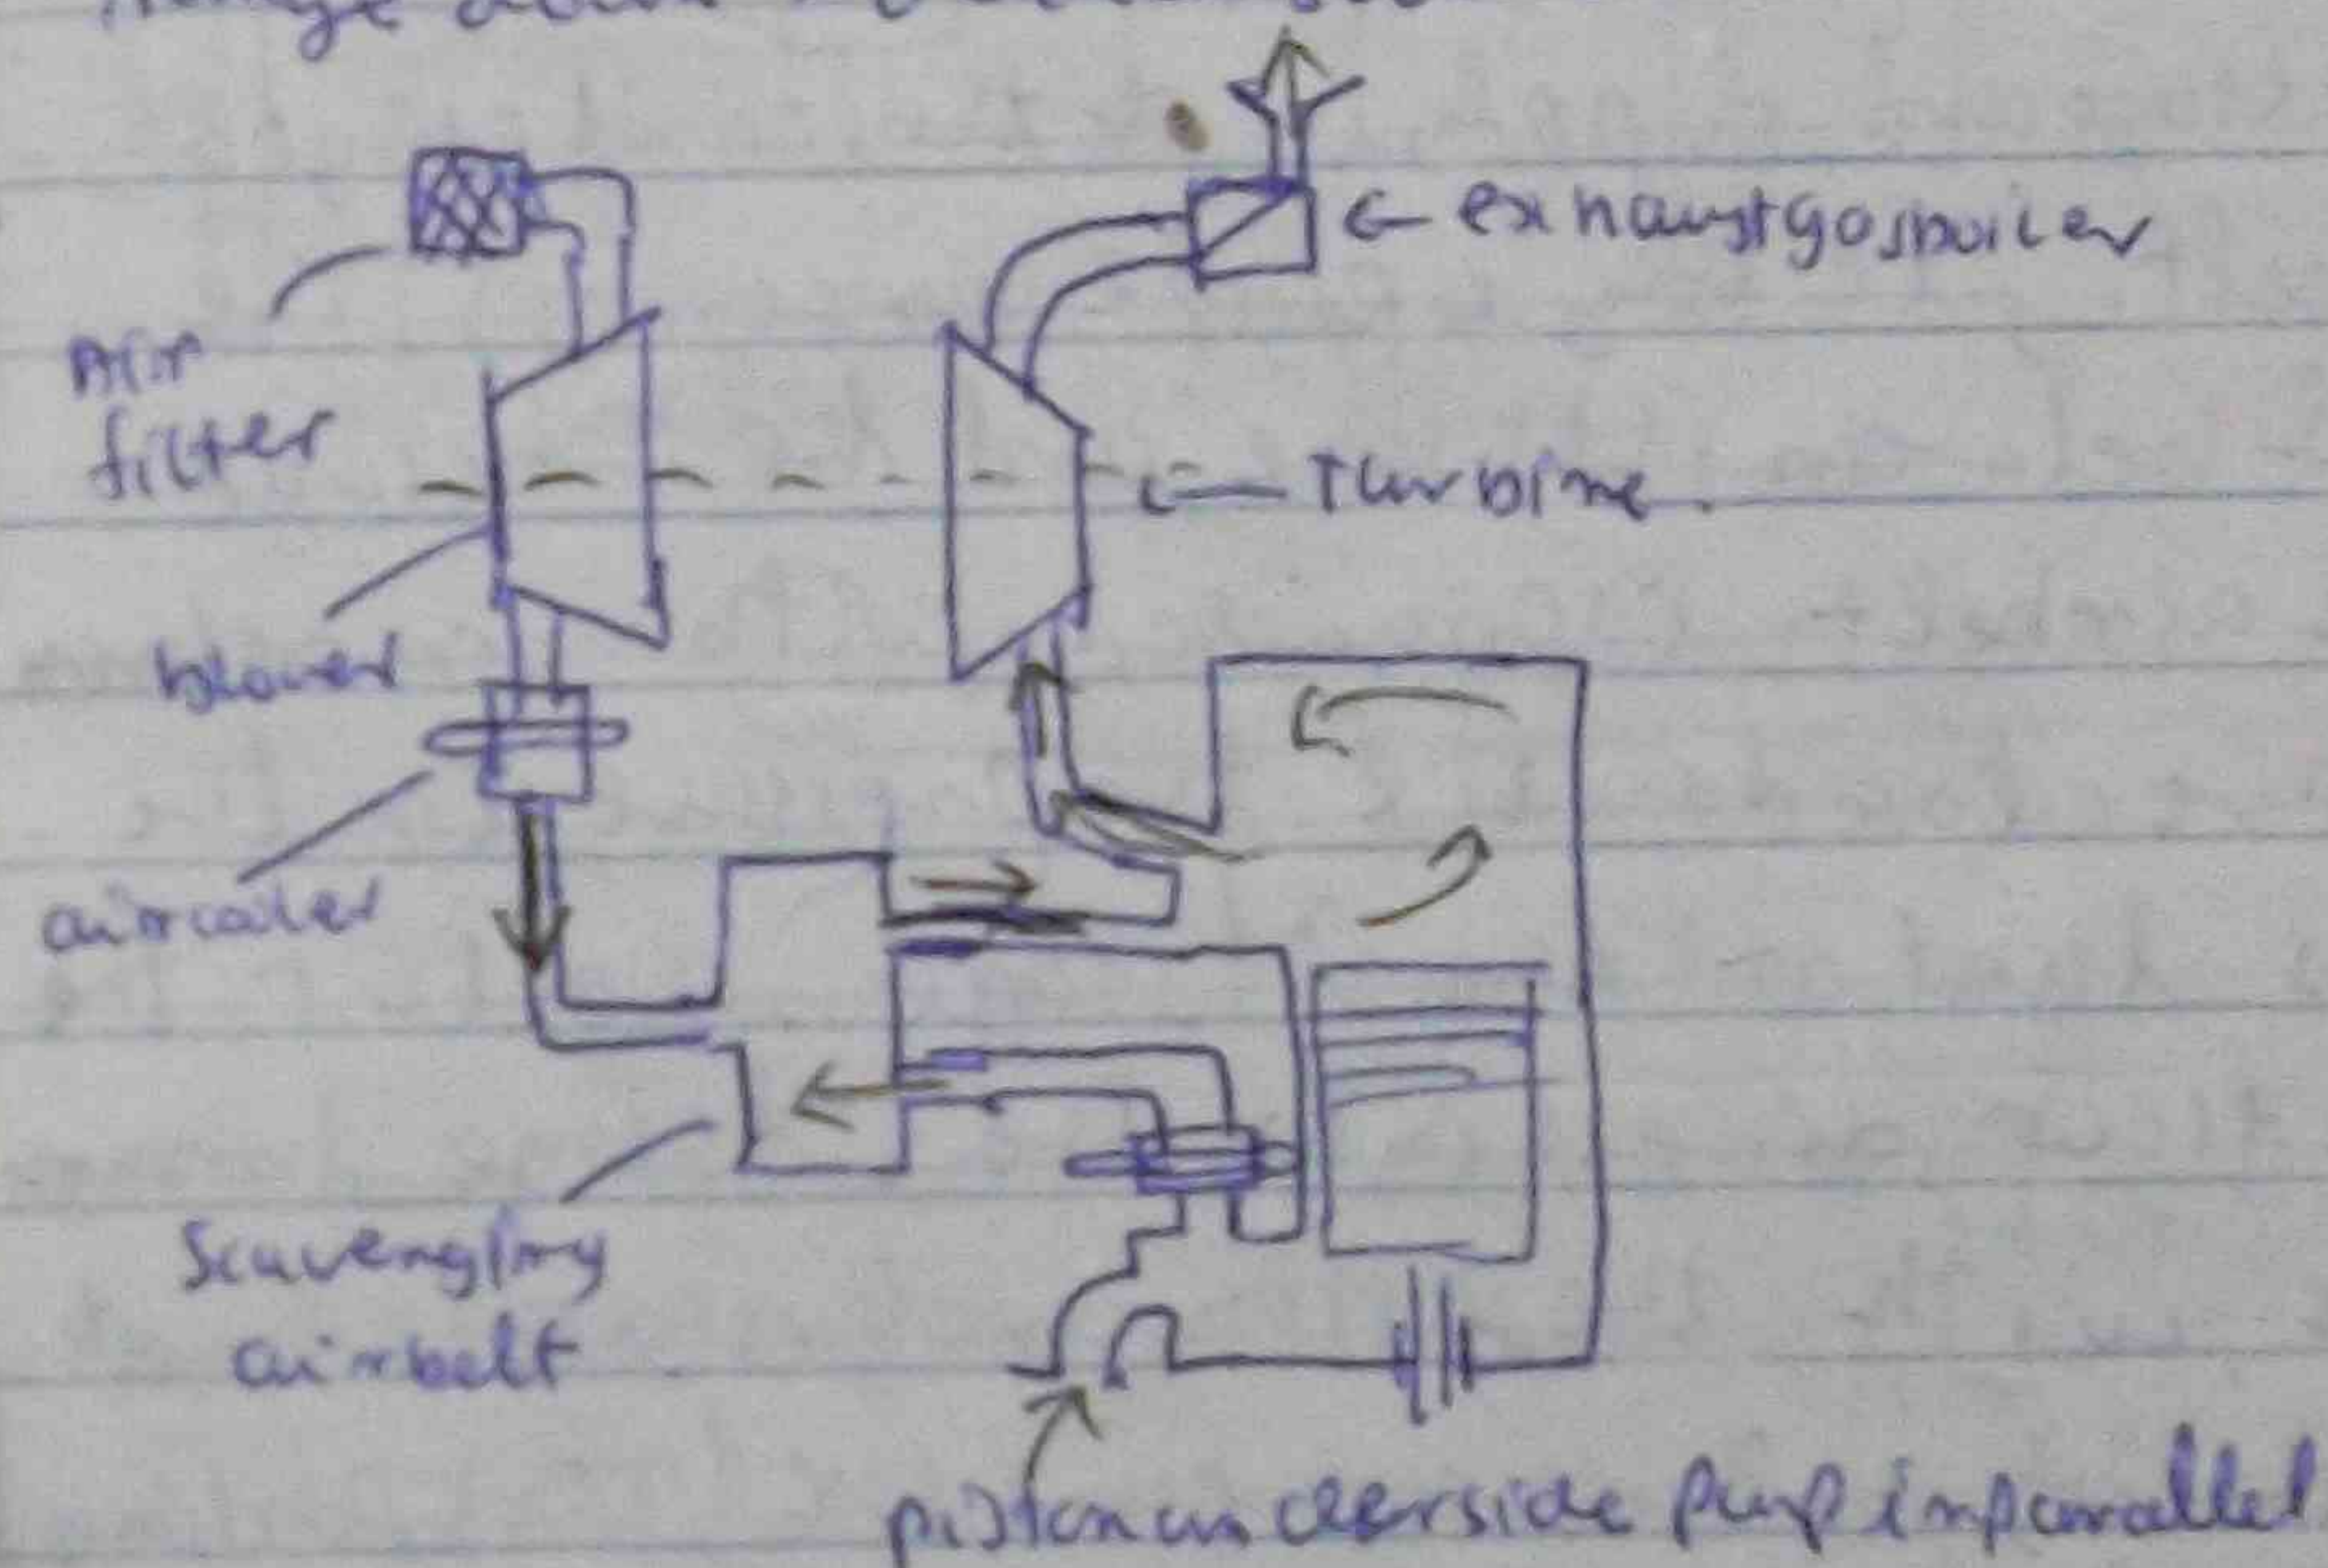 exhaustgasboiler
Air
filter
Turbine.
blower
aircooler
Scavenging
airbelt
piston underside pump in parallel